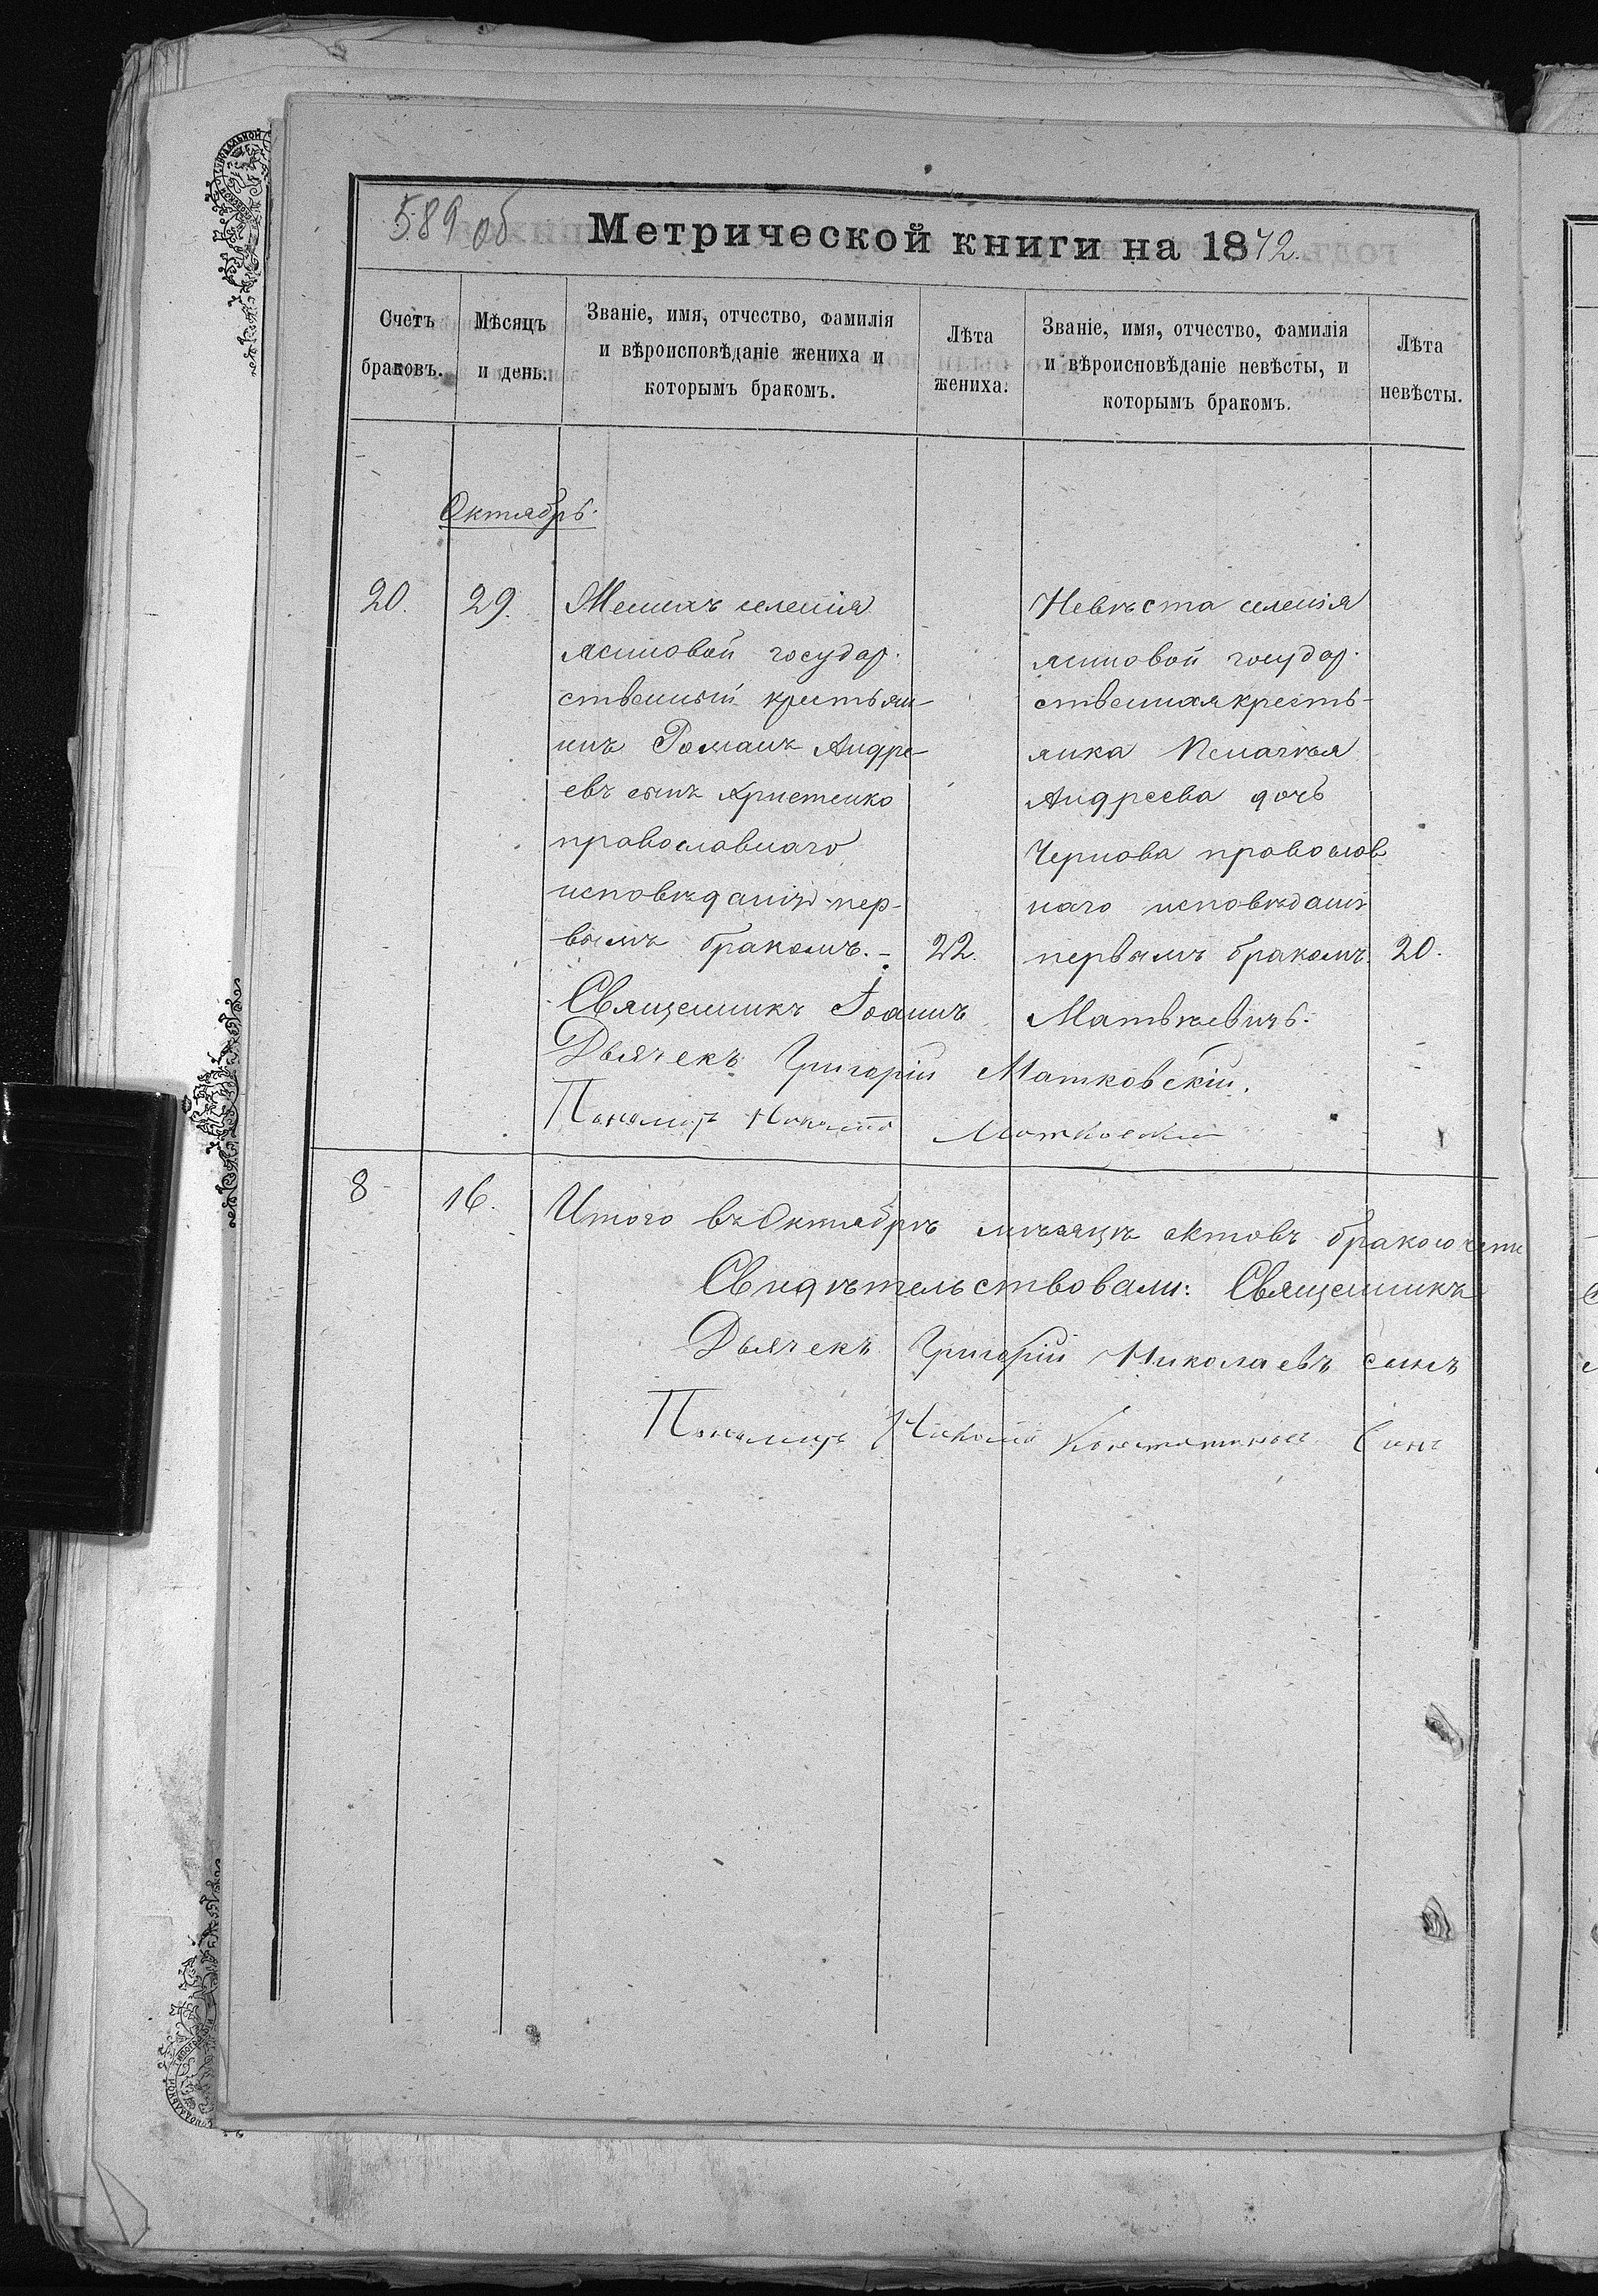 589 об
Метрической книги на 1872.
Счетъ браковъ.
Мѣсяцъ и день.
Званіе, имя, отчество, фамилія
и вѣроисповѣданіе жениха и
которымъ бракомъ.
Лѣта жениха.
Званіе, имя, отчество, фамилія
и вѣроисповѣданіе невѣсты, и
которымъ бракомъ.
Лѣта невѣсты.
Октябрь.
20.
29.
Женихъ селенія
Ясиновой государ-
ственный крестьян-
инъ Романъ Андре-
евъ сынъ Христенко
православнаго
исповѣданія пер-
вымъ бракомъ. –
22.
Невѣста селенія
Ясиновой государ-
ственная кресть-
янка Пелагѣя
Андреева дочь
Чернова православ
наго исповѣданія
первымъ бракомъ.
20.
Священникъ Іоаннъ Матвѣевичъ.
Дьячекъ Григорій Матковскій.
Пономарь Николай Матковскій
8
16.
Итого въ Октябрѣ мѣсяцѣ актовъ бракосочета
Свидѣтельствовали: Священникъ
Дьячекъ Григорій Николаевъ сынъ
Пономарь Николай Константиновъ Сынъ